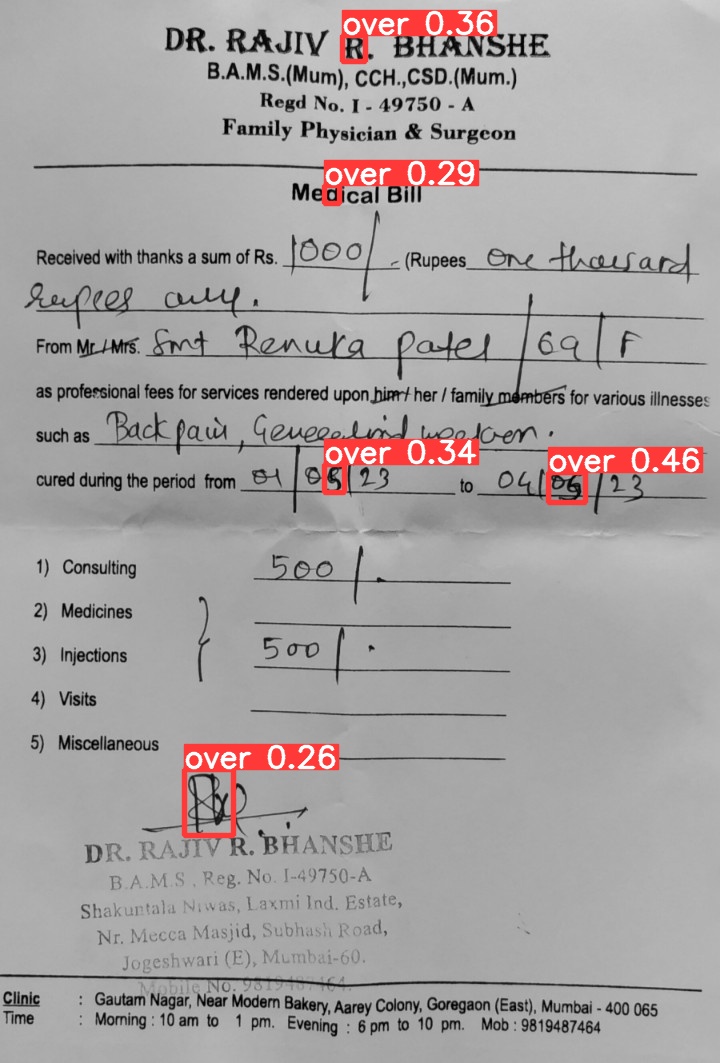 DR. RAJIV R. BHANSHE
B.A.M.S.(Mum), CCH.,CSD.(Mum.)
Regd No. I - 49750 - A
Family Physician & Surgeon
Medical Bill
Received with thanks a sum of Rs. 1000/- (Rupees one thousand
rupees only.
From Mr./Mrs. Smt Renuka Patel / 69 / F
as professional fees for services rendered upon him / her / family members for various illnesses
such as Back pain,
cured during the period from 01/05/23 to 04/06/23
1) Consulting 500/.
2) Medicines
3) Injections 500/.
4) Visits
5) Miscellaneous
DR. RAJIV R. BHANSHE
B.A.M.S , Reg. No. I-49750-A
Shakuntala Niwas, Laxmi Ind. Estate,
Nr. Mecca Masjid, Subhash Road,
Jogeshwari (E), Mumbai-60.
Mobile No. 9819487464.
Clinic : Gautam Nagar, Near Modern Bakery, Aarey Colony, Goregaon (East), Mumbai - 400 065
Time : Morning : 10 am to 1 pm. Evening : 6 pm to 10 pm. Mob : 9819487464
over 0.36
over 0.29
over 0.34
over 0.46
over 0.26